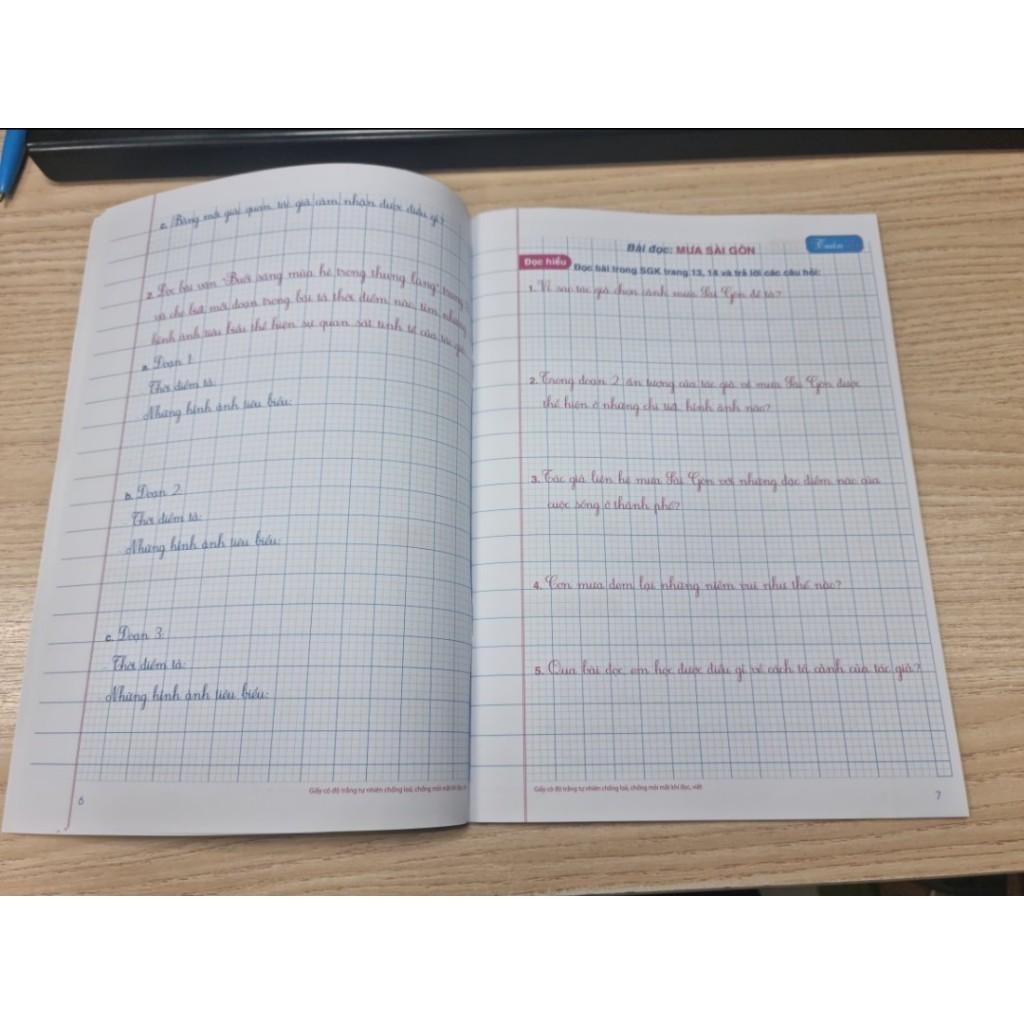 c. Bằng mỗi giác quan, tác giả cảm nhận được điều gì?
2. Đọc bài văn "Buổi sáng mùa hè trong thung lũng", trang
và cho biết mỗi đoạn trong bài tả thời điểm nào, tìm những
hình ảnh tiêu biểu thể hiện sự quan sát tinh tế của tác giả.
a. Đoạn 1:
Thời điểm tả:
Những hình ảnh tiêu biểu:
b. Đoạn 2:
Thời điểm tả:
Những hình ảnh tiêu biểu:
c. Đoạn 3:
Thời điểm tả:
Những hình ảnh tiêu biểu:
6
Giấy có độ trắng tự nhiên chống loá, chống mỏi mắt khi đọc,
Tuần
Bài đọc: MƯA SÀI GÒN
Đọc hiểu Đọc bài trong SGK trang 13, 14 và trả lời các câu hỏi:
1. Vì sao tác giả chọn cảnh mưa Sài Gòn để tả?
2. Trong đoạn 2, ấn tượng của tác giả về mưa Sài Gòn được
thể hiện ở những chi tiết, hình ảnh nào?
3. Tác giả liên hệ mưa Sài Gòn với những đặc điểm nào của
cuộc sống ở thành phố?
4. Cơn mưa đem lại những niềm vui như thế nào?
5. Qua bài đọc, em học được điều gì về cách tả cảnh của tác giả?
Giấy có độ trắng tự nhiên chống loá, chống mỏi mắt khi đọc, viết
7